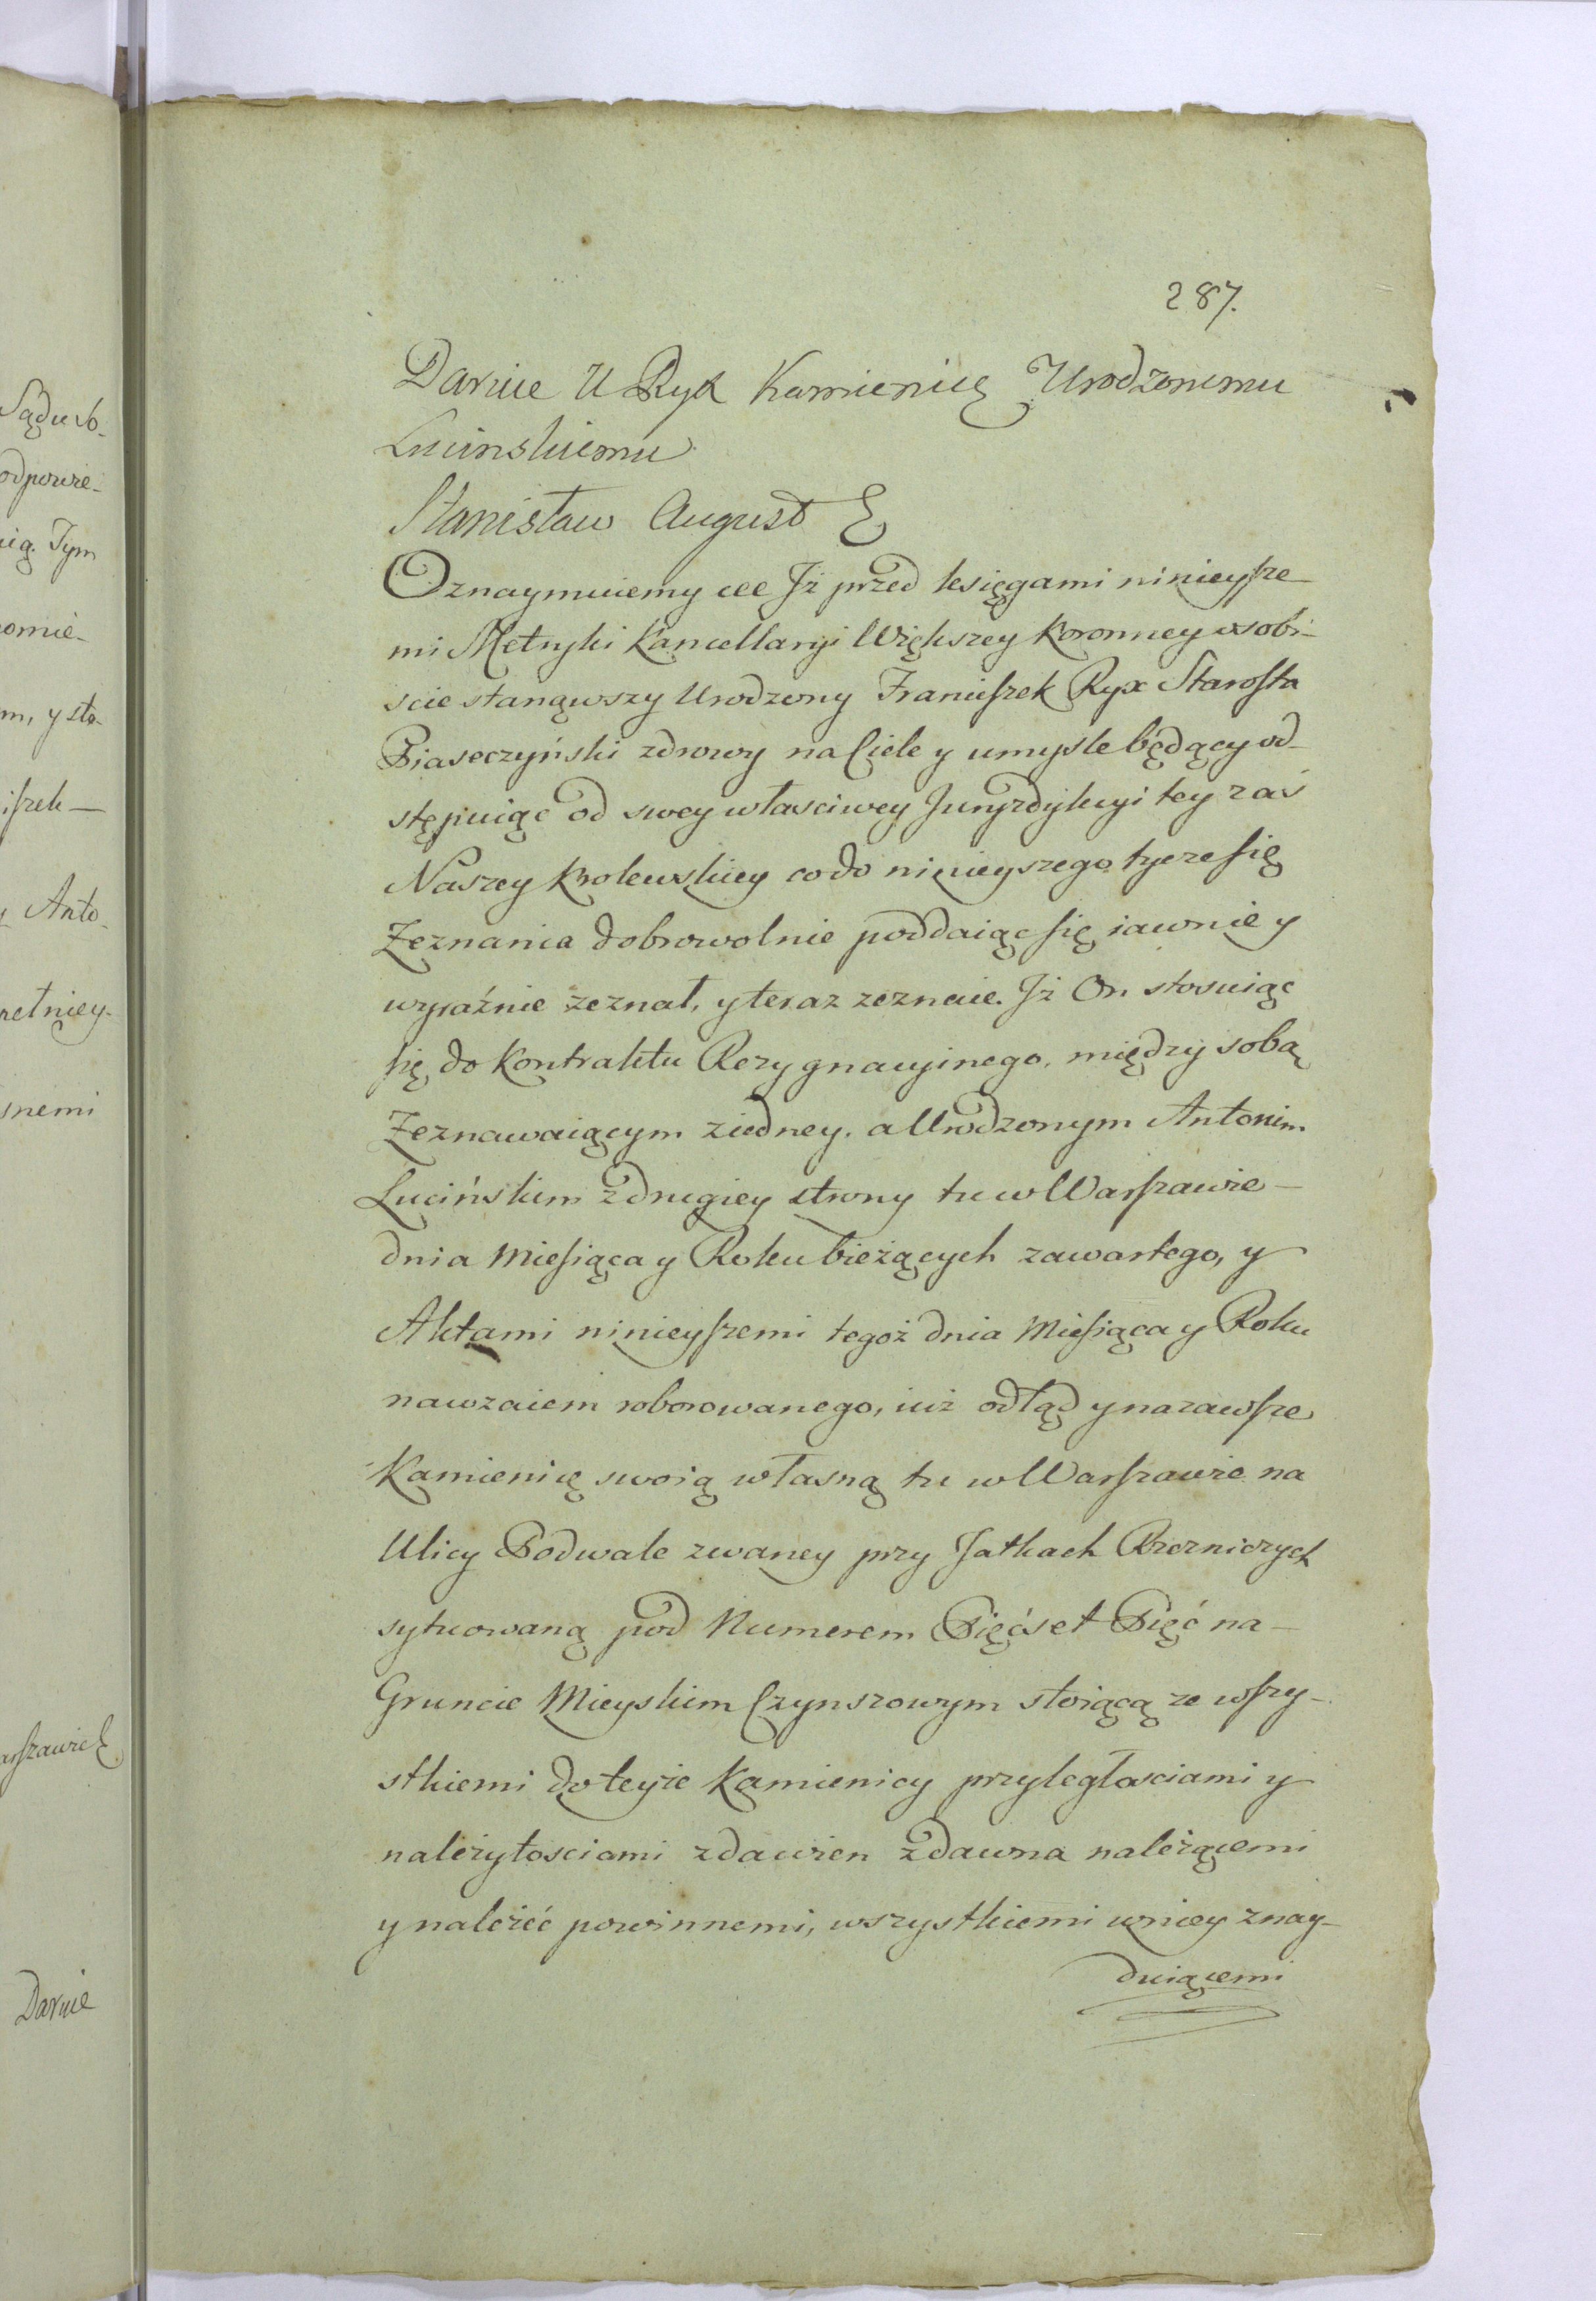 287.
Daruie U Ryx Kamienicę Urodzonemu
Lucinskiemu
Stanisław August &
Oznaymuiemy &&& Iż przed księgami ninieysze-
mi Metryki Kancellaryi Większey Koronney osobi-
scie stanąwszy Urodzony Franciszek Ryx Starosta
Piaseczyński zdrowy na Ciele y umysle będący od-
stępuiąc od swey własciwey Juryzdykcyi tey zaś
Naszey Krolewskiey co do ninieyszego tycze się
Zeznania dobrowolnie poddaiąc się iawnie y
wyraźnie zeznał, y teraz zeznaie. Iż On stosuiąc
się do Kontraktu Rezygnacyinego, między sobą
Zeznawaiącym z iedney, a Urodzonym Antonim
Lucińskim z drugiey strony tu w Warszawie -
dnia Miesiąca y Roku bieżących zawartego, y
Aktami ninieyszemi tegoż dnia Miesiąca y Roku
nawzaiem roborowanego, iuż odtąd y nazawsze
Kamienicę swoią własną tu w Warszawie na
Ulicy Podwale zwaney przy Jatkach Rzezniczych
sytuowaną pod Numerem Pięćset Pięć na -
Gruncie Mieyskim Czynszowym stoiącą ze wszy-
stkiemi do teyże Kamienicy przyległosciami y
należytosciami zdawien zdawna należącemi
y należeć powinnemi, wszystkiemi w niey znay-
duiącemi
Sądu
odpowie-
Tym
omie-
m, y sto-
iszek -
Anto-
netniey-
snemi
arszawie &
Daruie